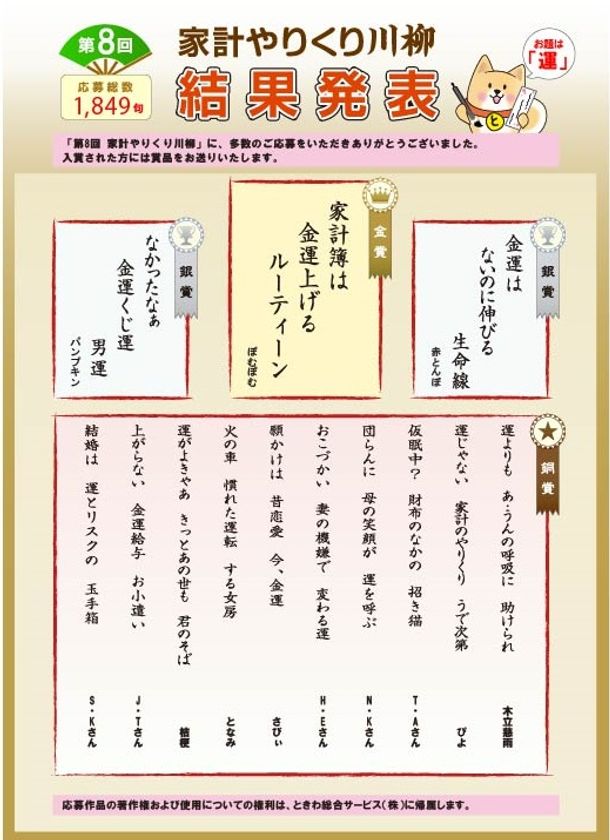 第8回
応募総数
1,849句
家計やりくり川柳
結果発表
お題は
「運」
と
「第8回 家計やりくり川柳」に、多数のご応募をいただきありがとうございました。
入賞された方には賞品をお送りいたします。
金賞
家計簿は
金運上げる
ルーティーン
ぽむぽむ
銀賞
金運は
ないのに伸びる
生命線
赤とんぼ
銀賞
なかったなぁ
金運くじ運
男運
パンプキン
銅賞
運よりも あ・うんの呼吸に 助けられ 木立慈雨
運じゃない 家計のやりくり うで次第 ぴよ
仮眠中？ 財布のなかの 招き猫 T・Aさん
団らんに 母の笑顔が 運を呼ぶ N・Kさん
おこづかい 妻の機嫌で 変わる運 H・Eさん
願かけは 昔恋愛 今、金運 さびぃ
火の車 慣れた運転 する女房 となみ
運がよきゃあ きっとあの世も 君のそば 桔梗
上がらない 金運給与 お小遣い J・Tさん
結婚は 運とリスクの 玉手箱 S・Kさん
応募作品の著作権および使用についての権利は、ときわ総合サービス(株)に帰属します。